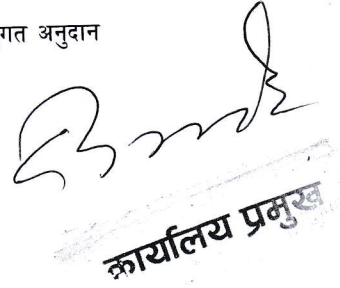 गत अनुदान
कार्यालय प्रमुख